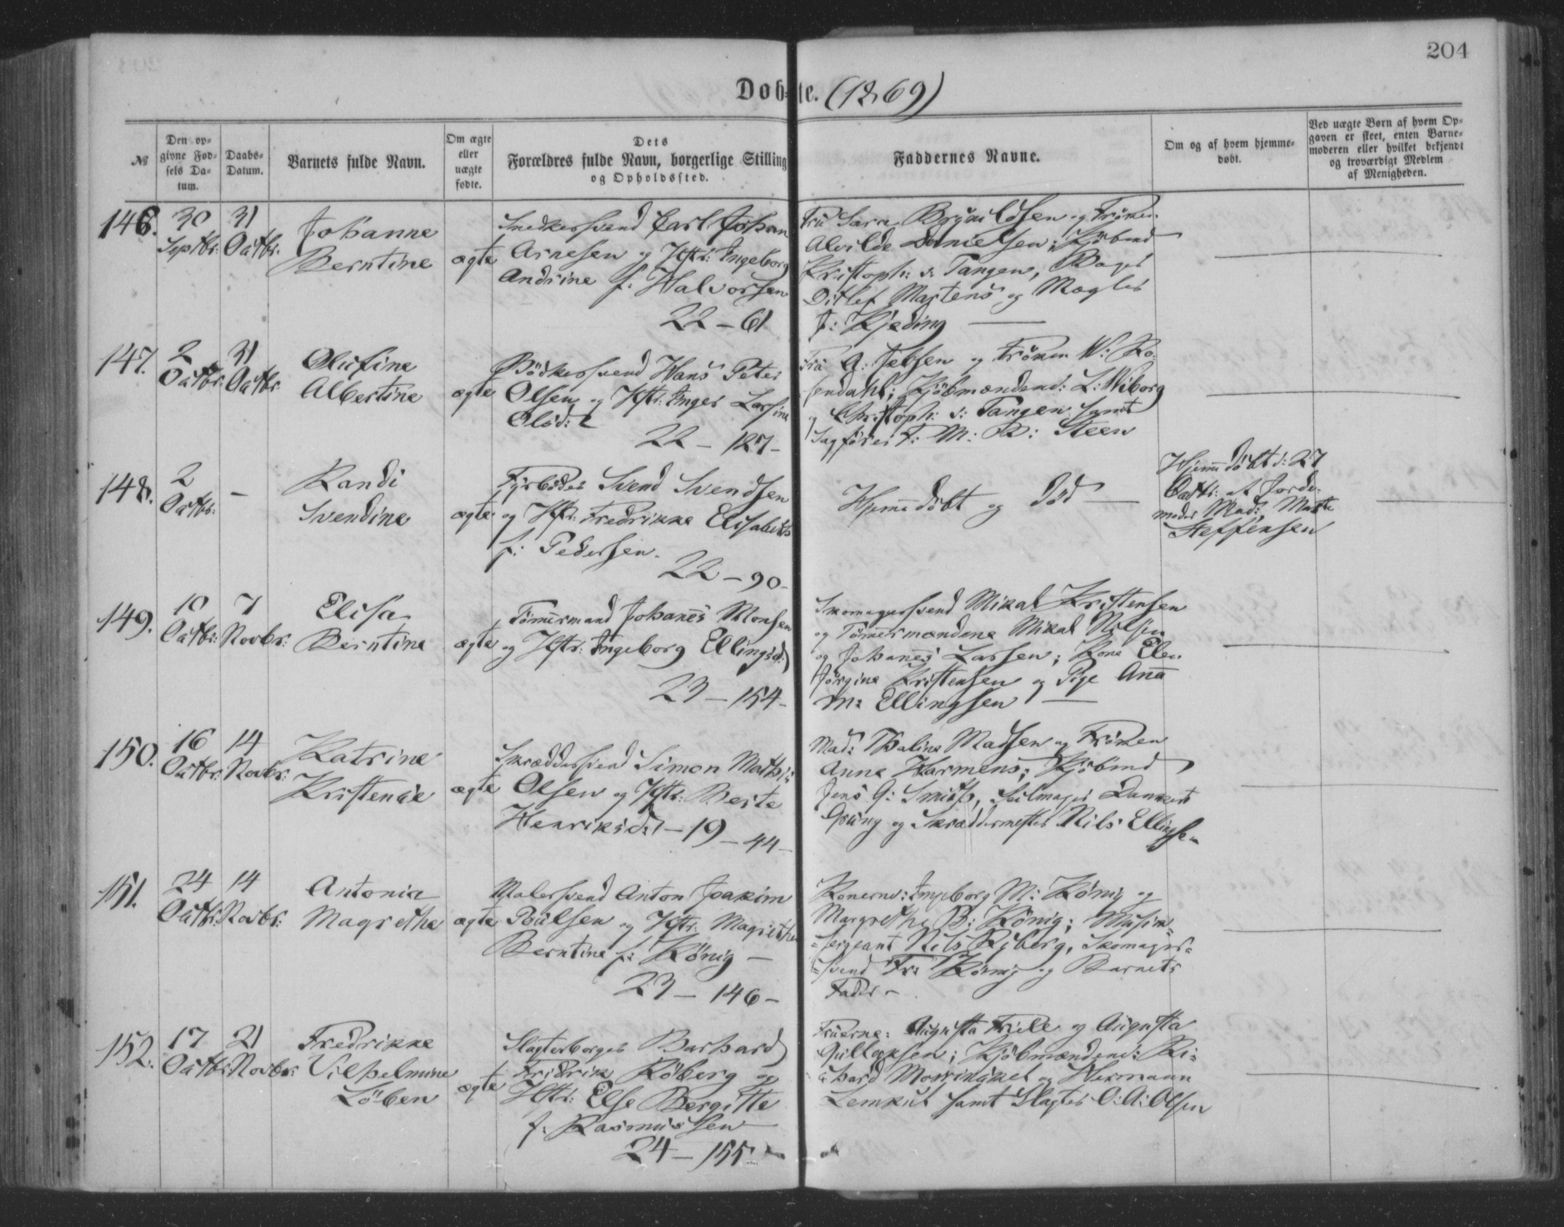 204
Döbte. (1869)
№
Den opgivne Fødsels Datum.
Daabs-Datum.
Barnets fulde Navn.
Om ægte eller uægte fødte.
Dets Forældres fulde Navn, borgerlige Stilling og Opholdssted.
Faddernes Navne.
Om og af hvem hjemmedøbt.
Ved uægte Børn af hvem Opgaven er skeet, enten Barnemoderen eller hvilket bekjendt og troværdigt Medlem af Menigheden.
146.
30 Septbr.
31 Octbr.
Johanne
Berntine
ægte
Snedkersvend Carl Johan
Arnesen og Hstr: Ingeborg
Andrine f: Halvorsen
22 – 61
Fru Sara Brynildsen og Frøken
Alvilde Danielsen; Kjöbmd
Kristoph: v: Tangen,
Ditlef Martens og Mægler
J: Kjeding
147.
2 Octbr.
31 Octbr.
Olufine
Albertine
ægte
Bödkersvend Hans Peter
Olsen og Hstr: Inger Larsine
Olsd:
22 – 127 –
Fru A: Jebsen og Frøken W: Ro-
sendahl; Kjöbmændene: L: Wiborg
og Christoph: v: Tangen samt
Sagfører F: M: R: Steen
148.
2 Octbr.
–
Randi
Svendine
ægte
Fyrböder Svend Svendsen
og Hstr: Fredrikke Elisabeth
f: Pedersen.
22 – 90 –
Hjemmedöbt og död –
Hjemmedöbt d: 27
Octb: af Jorde-
moder Mad: Marte
Steffensen
149.
10 Octbr.
7 Novbr.
Elisa
Berntine
ægte
Tömmermand Johanes Monsen
og Hstr: Ingeborg Ellingsd:
23 – 154 –
Skomagersvend Mikal Kristensen
og Tömmermændene Mikal Nilsen
og Johanes Larsen; Kone Elen
Jörgine Kristensen og Pige Ana
M: Ellingsen –
150.
16 Octbr.
14 Novbr.
Katrine
Kristense
ægte
Skræddersvend Simon Mathi:
Olsen og Hstr: Berte
Henriksd: – 19 – 44 –
Mad: Thaline Madsen og Fröken
Anna Harmens; Kjöbmd
Jens G: Smith, Seilmager
Grung og Skræddermester Nils Ellingsen
151.
24 Octbr.
14 Novbr.
Antonia
Magrethe
ægte
Malersvend Anton Joakim
Poülsen og Hstr: Magrethe
Berntine f: König –
23 – 146 –
Konerne: Ingeborg M: König og
Margrethe B: König; Musik-
sergeant Nils Ryberg, Skomager-
svend Fr: König og Barnets
Fader –
152.
17 Octbr.
21 Novbr.
Fredrikke
Vilhelmine
Löben
ægte
Slagterborger Barhard
Fridrik Röberg og
Hstr: Else Bergitte
f: Rasmussen
24 – 155 –
Fruerne: Augusta Friele og Augusta
Gullaksen; Kjöbmændene: Ri-
chard og Hermann
Lemkul samt Slagter O: A: Olsen